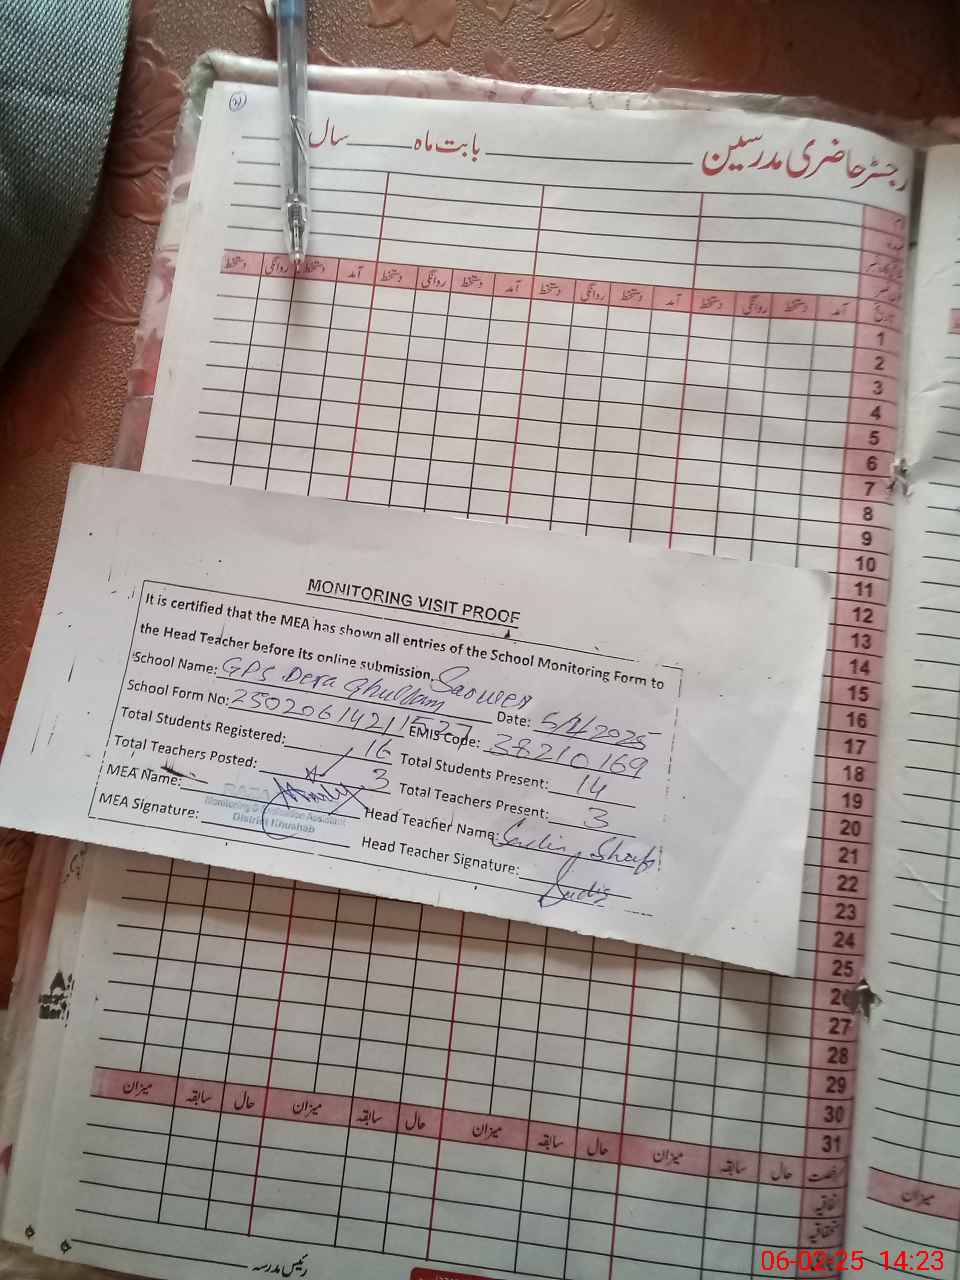 رجسٹر حاضری مدرسین ______ بابت ماہ ______ سال ______
آمد دستخط روانگی دستخط آمد دستخط روانگی دستخط آمد دستخط روانگی دستخط آمد دستخط روانگی دستخط
تاریخ
1
2
3
4
5
6
7
8
9
10
11
12
13
14
15
16
17
18
19
20
21
22
23
24
25
26
27
28
29
30
31
MONITORING VISIT PROOF
It is certified that the MEA has shown all entries of the School Monitoring Form to
the Head Teacher before its online submission.
School Name: GPS Dera Ghullam Sarwer Date: 5/2/2025
School Form No: 25020614211527 EMIS Code: 38210169
Total Students Registered: 16 Total Students Present: 14
Total Teachers Posted: 3 Total Teachers Present: 3
MEA Name: Head Teacher Name:
MEA Signature: Head Teacher Signature:
Monitoring & Evaluation Assistant
District Khushab
حال سابقہ میزان حال سابقہ میزان حال سابقہ میزان حال سابقہ میزان
رخصت
اتفاقیہ
استحقاقیہ
میزان
رئیس مدرسہ
06-02-25 14:23